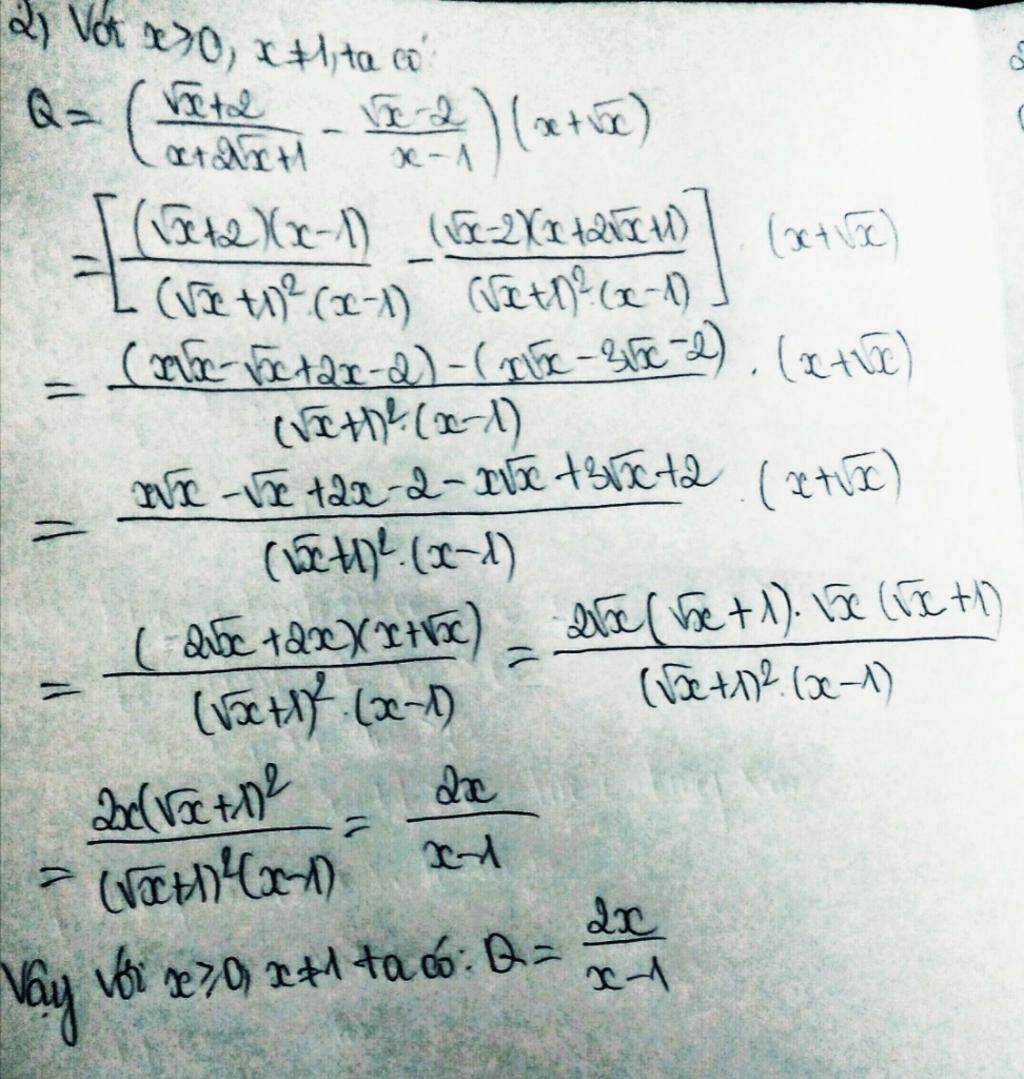 2) Với x>0, x≠1, ta có:
Q = ( (√x+2)/(x+2√x+1) - (√x-2)/(x-1) ) (x+√x)
= [ (√x+2)(x-1)/((√x+1)².(x-1)) - (√x-2)(x+2√x+1)/((√x+1)².(x-1)) ] . (x+√x)
= ((x√x-√x+2x-2)-(x√x-3√x-2))/((√x+1)².(x-1)) . (x+√x)
= (x√x-√x+2x-2-x√x+3√x+2)/((√x+1)².(x-1)) . (x+√x)
= (2√x+2x)(x+√x)/((√x+1)².(x-1)) = 2√x(√x+1).√x(√x+1)/((√x+1)².(x-1))
= 2x(√x+1)²/((√x+1)²(x-1)) = 2x/(x-1)
Vậy với x>0, x≠1 ta có: Q = 2x/(x-1)